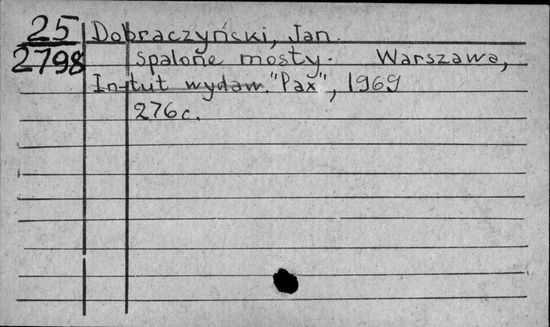 25 Dobraczyński, Jan.
2798 Spalone mosty. Warszawa,
In-tut wydaw. "Pax", 1969
276c.